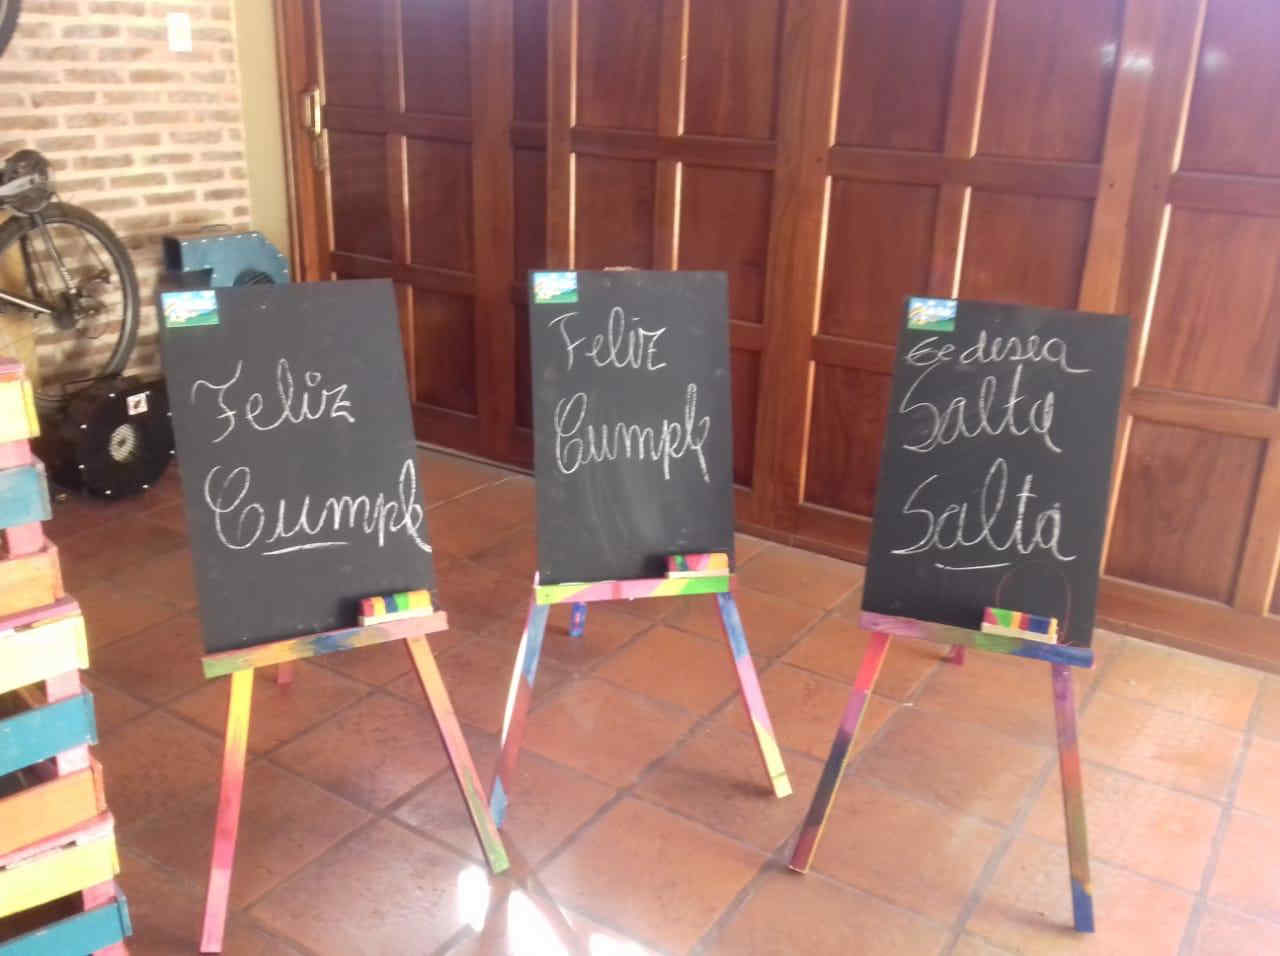 Feliz
Cumple
Feliz
Cumple
Te desea
Salta
Salta